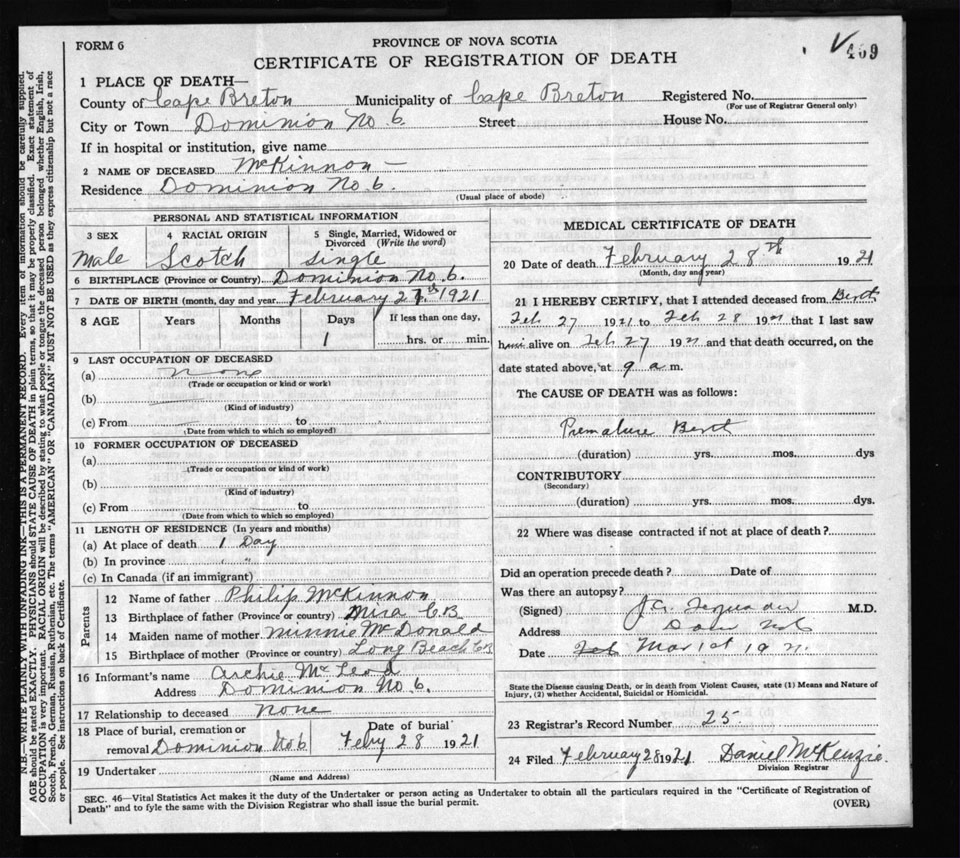 FORM 6
PROVINCE OF NOVA SCOTIA
CERTIFICATE OF REGISTRATION OF DEATH
469
1 PLACE OF DEATH—
County of Cape Breton Municipality of Cape Breton Registered No.
(For use of Registrar General only)
City or Town Dominion No 6 Street House No.
If in hospital or institution, give name
2 NAME OF DECEASED McKinnon —
Residence Dominion No. 6.
(Usual place of abode)
PERSONAL AND STATISTICAL INFORMATION
3 SEX 4 RACIAL ORIGIN 5 Single, Married, Widowed or
Divorced (Write the word)
Male Scotch Single
6 BIRTHPLACE (Province or Country) Dominion No. 6.
7 DATE OF BIRTH (month, day and year) February 27th 1921
8 AGE Years Months Days If less than one day,
1 hrs. or min.
9 LAST OCCUPATION OF DECEASED
(a) none
(Trade or occupation or kind or work)
(b)
(Kind of industry)
(c) From to
(Date from which to which so employed)
10 FORMER OCCUPATION OF DECEASED
(a)
(Trade or occupation or kind of work)
(b)
(Kind of industry)
(c) From to
(Date from which to which so employed)
11 LENGTH OF RESIDENCE (In years and months)
(a) At place of death 1 Day
(b) In province " "
(c) In Canada (if an immigrant)
Parents
12 Name of father Philip McKinnon
13 Birthplace of father (Province or country) Mira C.B
14 Maiden name of mother Minnie McDonald
15 Birthplace of mother (Province or country) Long Beach C.B
16 Informant's name Archie McLeod
Address Dominion No 6.
17 Relationship to deceased none
18 Place of burial, cremation or Date of burial
removal Dominion No 6 Feby 28 1921
19 Undertaker
(Name and Address)
MEDICAL CERTIFICATE OF DEATH
20 Date of death February 28th 1921
(Month, day and year)
21 I HEREBY CERTIFY, that I attended deceased from Berth
Feb 27 1921 to Feb 28 1921 that I last saw
him alive on Feb 27 1921 and that death occurred, on the
date stated above, at 9 a m.
The CAUSE OF DEATH was as follows:
Premature Berth
(duration) yrs. mos. dys
CONTRIBUTORY
(Secondary)
(duration) yrs. mos. dys.
22 Where was disease contracted if not at place of death?
Did an operation precede death? Date of
Was there an autopsy?
(Signed) M.D.
Address
Date Feb Mar 1st 1921.
State the Disease causing Death, or in death from Violent Causes, state (1) Means and Nature of
Injury, (2) whether Accidental, Suicidal or Homicidal.
23 Registrar's Record Number 25.
24 Filed February 28 1921 Daniel McKenzie.
Division Registrar
SEC. 46—Vital Statistics Act makes it the duty of the Undertaker or person acting as Undertaker to obtain all the particulars required in the "Certificate of Registration of
Death" and to fyle the same with the Division Registrar who shall issue the burial permit.
(OVER)
N.B.—WRITE PLAINLY WITH UNFADING INK—THIS IS A PERMANENT RECORD. Every item of information should be carefully supplied.
AGE should be stated EXACTLY. PHYSICIANS should STATE CAUSE OF DEATH in plain terms, so that it may be properly classified. Exact statement of
OCCUPATION is very important. RACIAL ORIGIN will be described by stating to what people or tongue the deceased person belonged whether English, Irish,
Scotch, French, German, Russian, Ruthenian, etc. The terms "AMERICAN" OR "CANADIAN" MUST NOT BE USED as they express citizenship but not a race
or people. See instructions on back of Certificate.